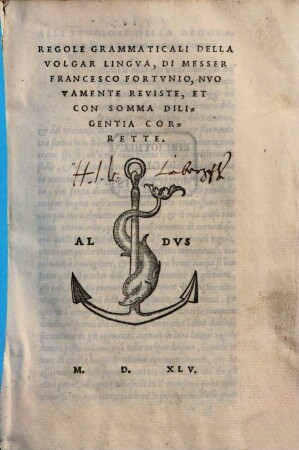 REGOLE GRAMMATICALI DELLA
VOLGAR LINGVA, DI MESSER
FRANCESCO FORTVNIO, NVO
VAMENTE REVISTE, ET
CON SOMMA DILI-
GENTIA COR-
RETTE.
AL DVS
M. D. XLV.